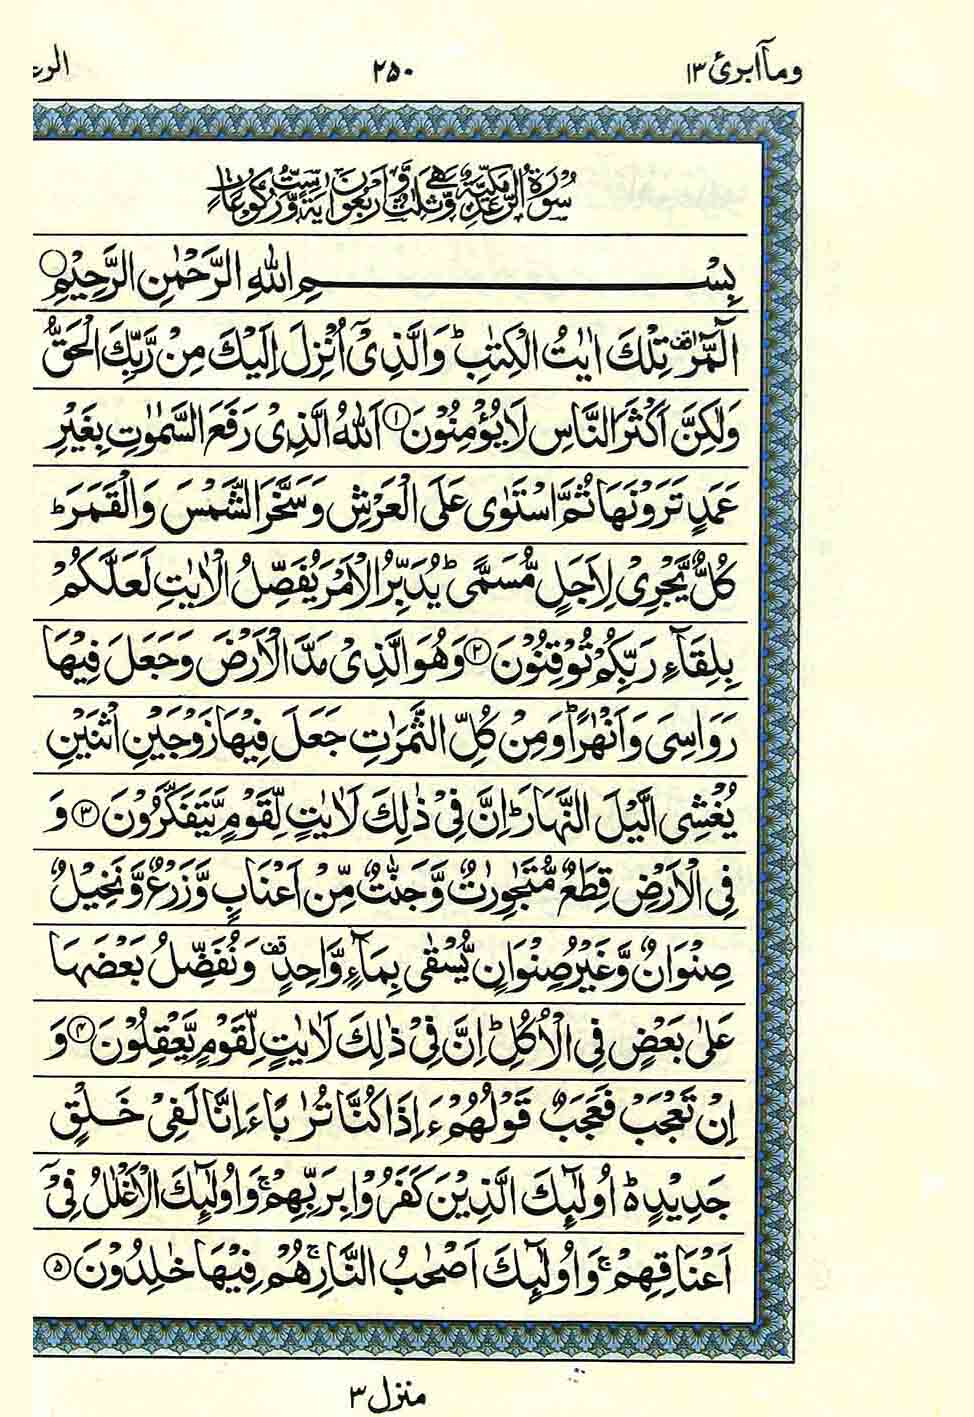 وما ابرئ ١٣
٢٥٠
الرع
سُوْرَةُ الرَّعْدِ مَكِّيَّةٌ وَّهِيَ ثَلٰثٌ وَّاَرْبَعُوْنَ اٰيَةً وَّسِتُّ رُكُوْعَاتٍ
بِسْمِ اللّٰهِ الرَّحْمٰنِ الرَّحِيْمِ
الٓمّٓرٰ ۫ تِلْكَ اٰيٰتُ الْكِتٰبِ ؕ وَالَّذِيْۤ اُنْزِلَ اِلَيْكَ مِنْ رَّبِّكَ الْحَقُّ
وَلٰكِنَّ اَكْثَرَ النَّاسِ لَا يُؤْمِنُوْنَ ١ اَللّٰهُ الَّذِيْ رَفَعَ السَّمٰوٰتِ بِغَيْرِ
عَمَدٍ تَرَوْنَهَا ثُمَّ اسْتَوٰى عَلَى الْعَرْشِ وَسَخَّرَ الشَّمْسَ وَالْقَمَرَ ؕ
كُلٌّ يَّجْرِيْ لِاَجَلٍ مُّسَمًّى ؕ يُدَبِّرُ الْاَمْرَ يُفَصِّلُ الْاٰيٰتِ لَعَلَّكُمْ
بِلِقَآءِ رَبِّكُمْ تُوْقِنُوْنَ ٢ وَهُوَ الَّذِيْ مَدَّ الْاَرْضَ وَجَعَلَ فِيْهَا
رَوَاسِيَ وَاَنْهٰرًا ؕ وَمِنْ كُلِّ الثَّمَرٰتِ جَعَلَ فِيْهَا زَوْجَيْنِ اثْنَيْنِ
يُغْشِي الَّيْلَ النَّهَارَ ؕ اِنَّ فِيْ ذٰلِكَ لَاٰيٰتٍ لِّقَوْمٍ يَّتَفَكَّرُوْنَ ٣ وَ
فِي الْاَرْضِ قِطَعٌ مُّتَجٰوِرٰتٌ وَّجَنّٰتٌ مِّنْ اَعْنَابٍ وَّزَرْعٌ وَّنَخِيْلٌ
صِنْوَانٌ وَّغَيْرُ صِنْوَانٍ يُّسْقٰى بِمَآءٍ وَّاحِدٍ ۫ وَنُفَضِّلُ بَعْضَهَا
عَلٰى بَعْضٍ فِي الْاُكُلِ ؕ اِنَّ فِيْ ذٰلِكَ لَاٰيٰتٍ لِّقَوْمٍ يَّعْقِلُوْنَ ۴ وَ
اِنْ تَعْجَبْ فَعَجَبٌ قَوْلُهُمْ ءَاِذَا كُنَّا تُرٰبًا ءَاِنَّا لَفِيْ خَلْقٍ
جَدِيْدٍ ۬ؕ اُولٰٓئِكَ الَّذِيْنَ كَفَرُوْا بِرَبِّهِمْ ۚ وَاُولٰٓئِكَ الْاَغْلٰلُ فِيْۤ
اَعْنَاقِهِمْ ۚ وَاُولٰٓئِكَ اَصْحٰبُ النَّارِ ۚ هُمْ فِيْهَا خٰلِدُوْنَ ۵
منزل ٣